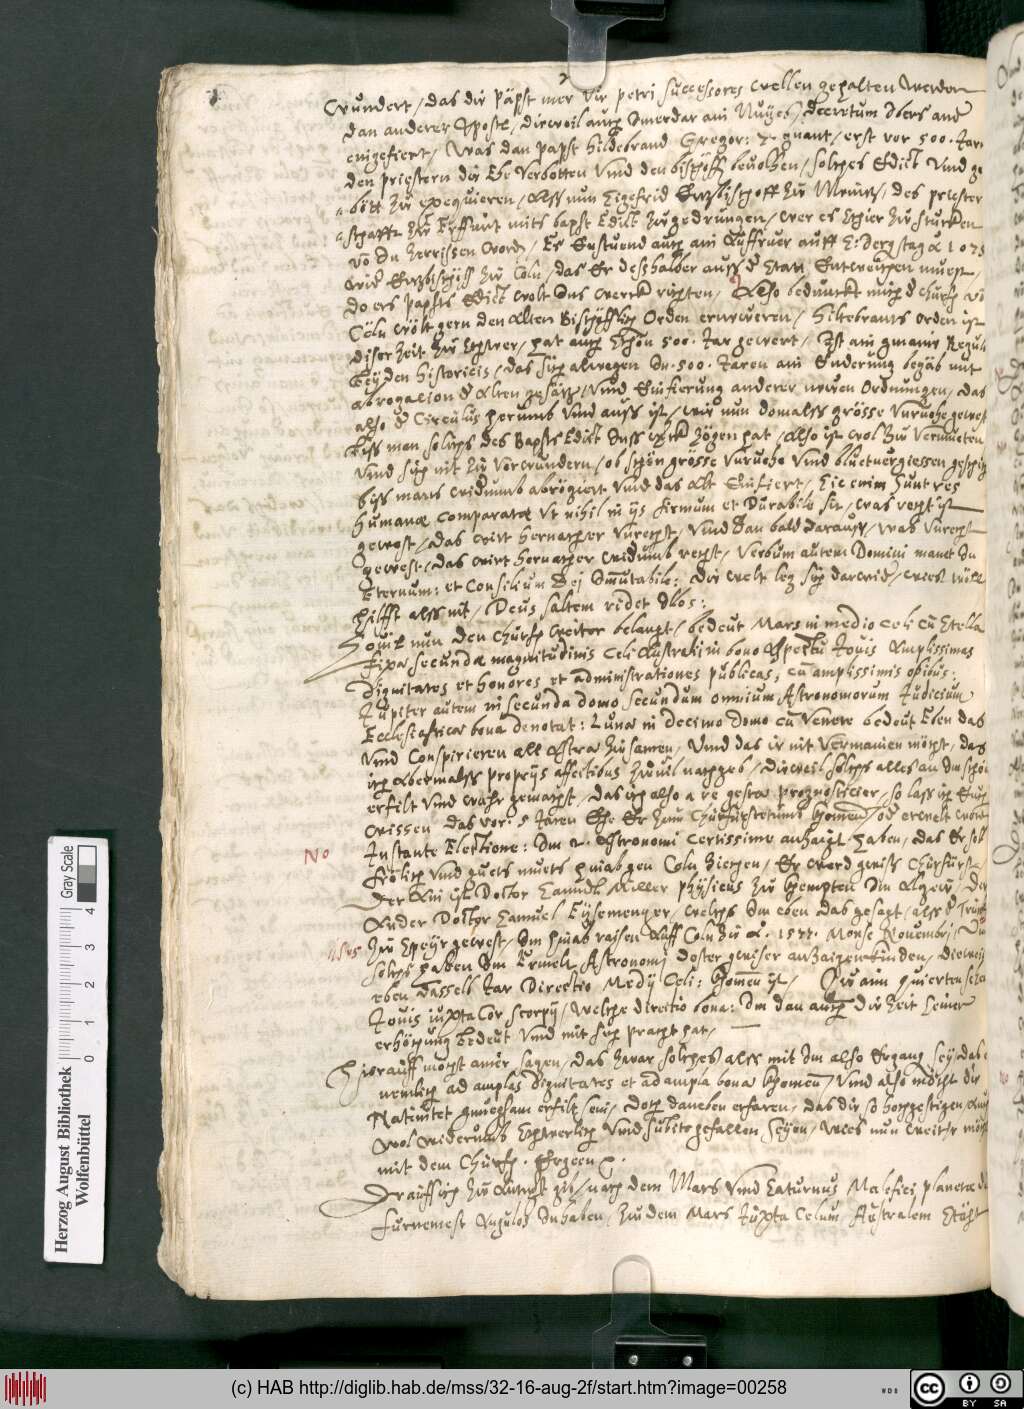 wundert, das die Päpst mer wir petri successores wellen gehalten werden
dan anderer Apostl, dieweil auch Immerdar ain Neües decretum vbers ander
eingefiert, Was dan papst Hildebrand Gregor: 7 gnant, erst vor 500. Jarn
den priestern die Ehe Verbotten Vnd den bischoffen beuolhen, solches Edict Vnd ge
bött zu exequieren, Alss nun Sigefrid Ertzbischoff zu Maintz, des priester
schafft zu Erffurt mits bapst Edict zugedrungen, wer es schier zu stucken
von In zerrissen word, Es Enstuend auch ain Auffruer auff
wid Ertzbischoff zu Cöln, das Er desshalber auss d Statt Entweichen muest,
do ers papsts Edict wolt Ins werck richten, Also bedunckt mich d Churf von
Cöln wölt gern den Alten Bischofflich Orden ernewern, Hiltebrants Orden ist
diser Zeit zu schwer, hat auch schon 500. Jar gewert, Ist ain gmaine Regul
bey den Historicis, das sich alwegen In 500. Jaren ain Enderung begäb mit
abrogation d Alten gesätz, vnd Einfierung anderer newen Ordnungen, das
also d Circulus herumb vnd auss ist, wie nun domalss grösse Vnruohe gewest
biss man solchs des Bapsts Edict Inss werck zogen hat, Also ist wol zu Vermueten
vnd sich nit zu Verwundern, ob schon grösse Vnruohe Vnd bluetuergiessen geschicht
biss mans widumb abrogiert vnd das Alt Einfiert, Sic enim sunt res
humanæ comparatæ Vt nihil in ijs firmum et Durabile sit, was recht ist
gewest, das wirt hernacher Vnrecht, Vnd dan bald darauff, was Vnrecht
gewest, das wirt hernacher widumb recht, Verbum autem Domini manet In
Eternum: et Consilium Dei Immutabile: Die welt leg sich darwider, wies wöll
hilfft alss nit, Deus saltem ridet Illos:
Souil nun den Churf weiter belangt, bedeut Mars in medio Celi cu Stella
fixa secundæ magnitudinis Celi Australi in bono Aspectu Jouis Amplissimas
Dignitates et honores et administrationes publicas, cu amplissimis opibus:
Jupiter autem in secunda domo secundum omnium Astronomorum Judicium
Ecclesiastica bona denotat: Luna in Decimo Domo cu Venere bedeut Eben das
Vnd Conspirieren all Astra zusamen, Vnd das ir nit Vermainen möcht, das
ich Abermalss propijs affectibus zuuil nachgeb, Dieweil solchs alles an Im schön
erfilt vnd wahr gemacht, das ich also a re gesta prognosticier, so lass ich Euch
wissen das vor 5 Jaren Ehe Er zum Churfürstetumb khomen, od erwelt worden
Instante Elektione: Im 2. Astronomi Certissime anzaigt haben, das Er soll
frölich vnd guets muets hinab gen Cöln ziehen, Er werd gewiss Churfürst,
No
Der Ain ist Doctor Samuel Müller physicus zu Kempten Im Algew, Der
Ander Doctor Samuel Eysenmenger, welchs Im eben das gesagt, alss d Truchs
1585 zu Speyr gewest, Im hinab raisen Auff Cöln zu A. 1577. Mense Nouembri, Dis
solchs haben Im Ermelt Astronomi dester gewiser anzaigen künden, dieweil
eben dasselb Jar Directio Medij Celi: khomen ist, Zu ain
Jouis iuxta Cor Scorpij, welche directio bona: Im dan auch die Zeit seiner
erhöhung bedeut vnd mit sich pracht hat,
Hierauff möcht ainer sagen, das zwar solches alss mit Im also Ergang sey, das er
nemlich ad amplas dignitates et ad ampla bona khomen, Vnd also möcht die
Natiuitet gnuegsam erfilt sein, doch daneben erfaren, das die so hochgestigen, Auch
wol widerumb schwerlich vnd subito gefallen seyen, wies nun weiter möcht
mit dem Churf. Ergeen
Darauff ich zu Antwort gib, nach dem Mars Vnd Saturnus Malefici planetæ die
furnemest Angulos Inhaben, zu dem Mars Juxta Celum Australem Steht
(c) HAB http://diglib.hab.de/mss/32-16-aug-2f/start.htm?image=00258
Herzog August Bibliothek
Wolfenbüttel
Gray Scale
0 1 2 3 4
WDB
cc BY SA